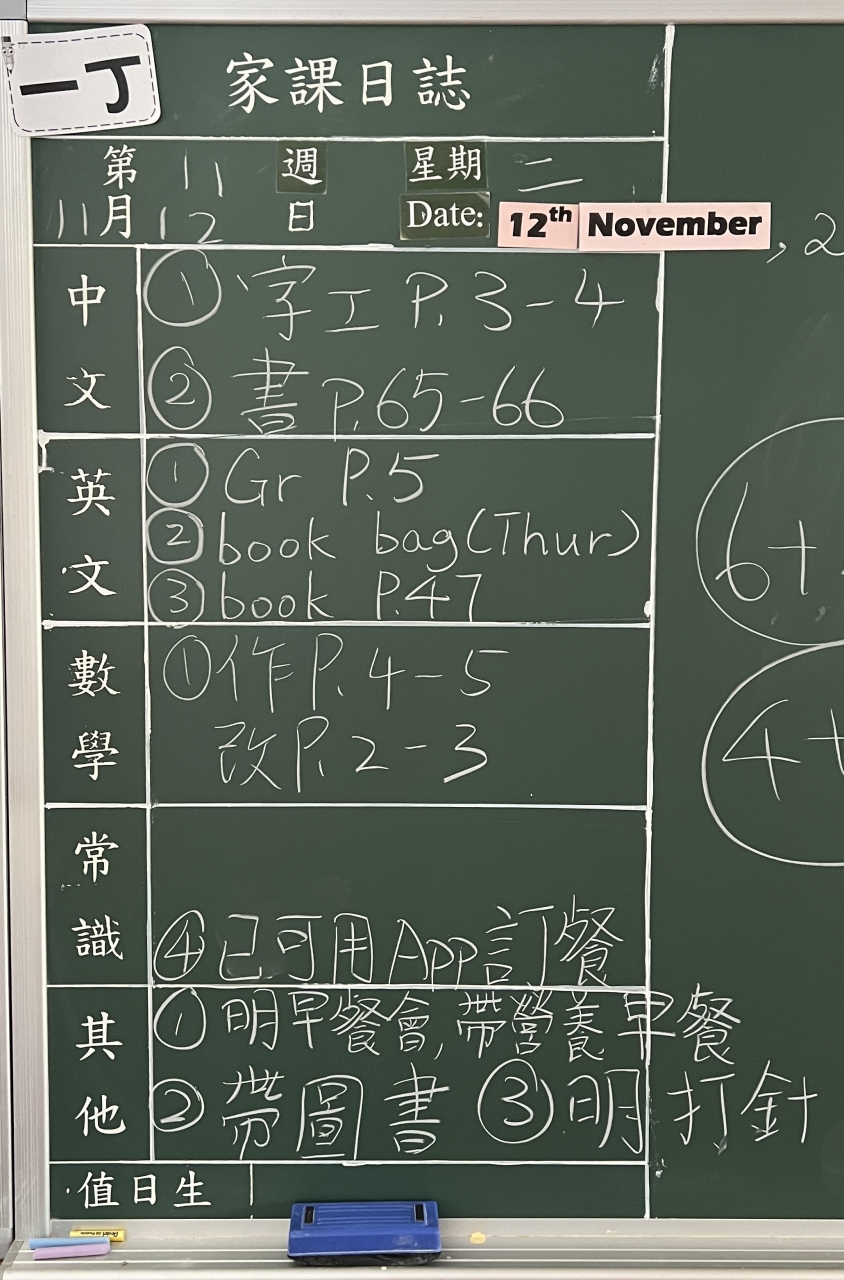 一丁
家課日誌
第 11 週 星期 二
11月12日 Date: 12th November
, 2
中文
① 字工 P. 3-4
② 書 P.65-66
英文
① Gr P.5
② book bag (Thur)
③ book P.47
6+
數學
① 作 P. 4-5
改 P. 2-3
4+
常識
④ 已可用App訂餐
其他
① 明早餐會, 帶營養早餐
② 帶圖書 ③ 明打針
值日生